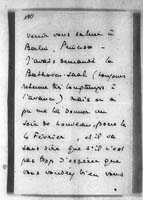 venir vous saluer à
Berlin, Princesse -
J'avais demandé la
Beethoven-Saal (toujours
retenu très longtemps à
l'avance) mais on a
pu me la donner un
soir de nouveau, pour le
4 Février, et il va
sans dire que s'il n'est
pas trop d'espérer que
vous voudrez bien vous